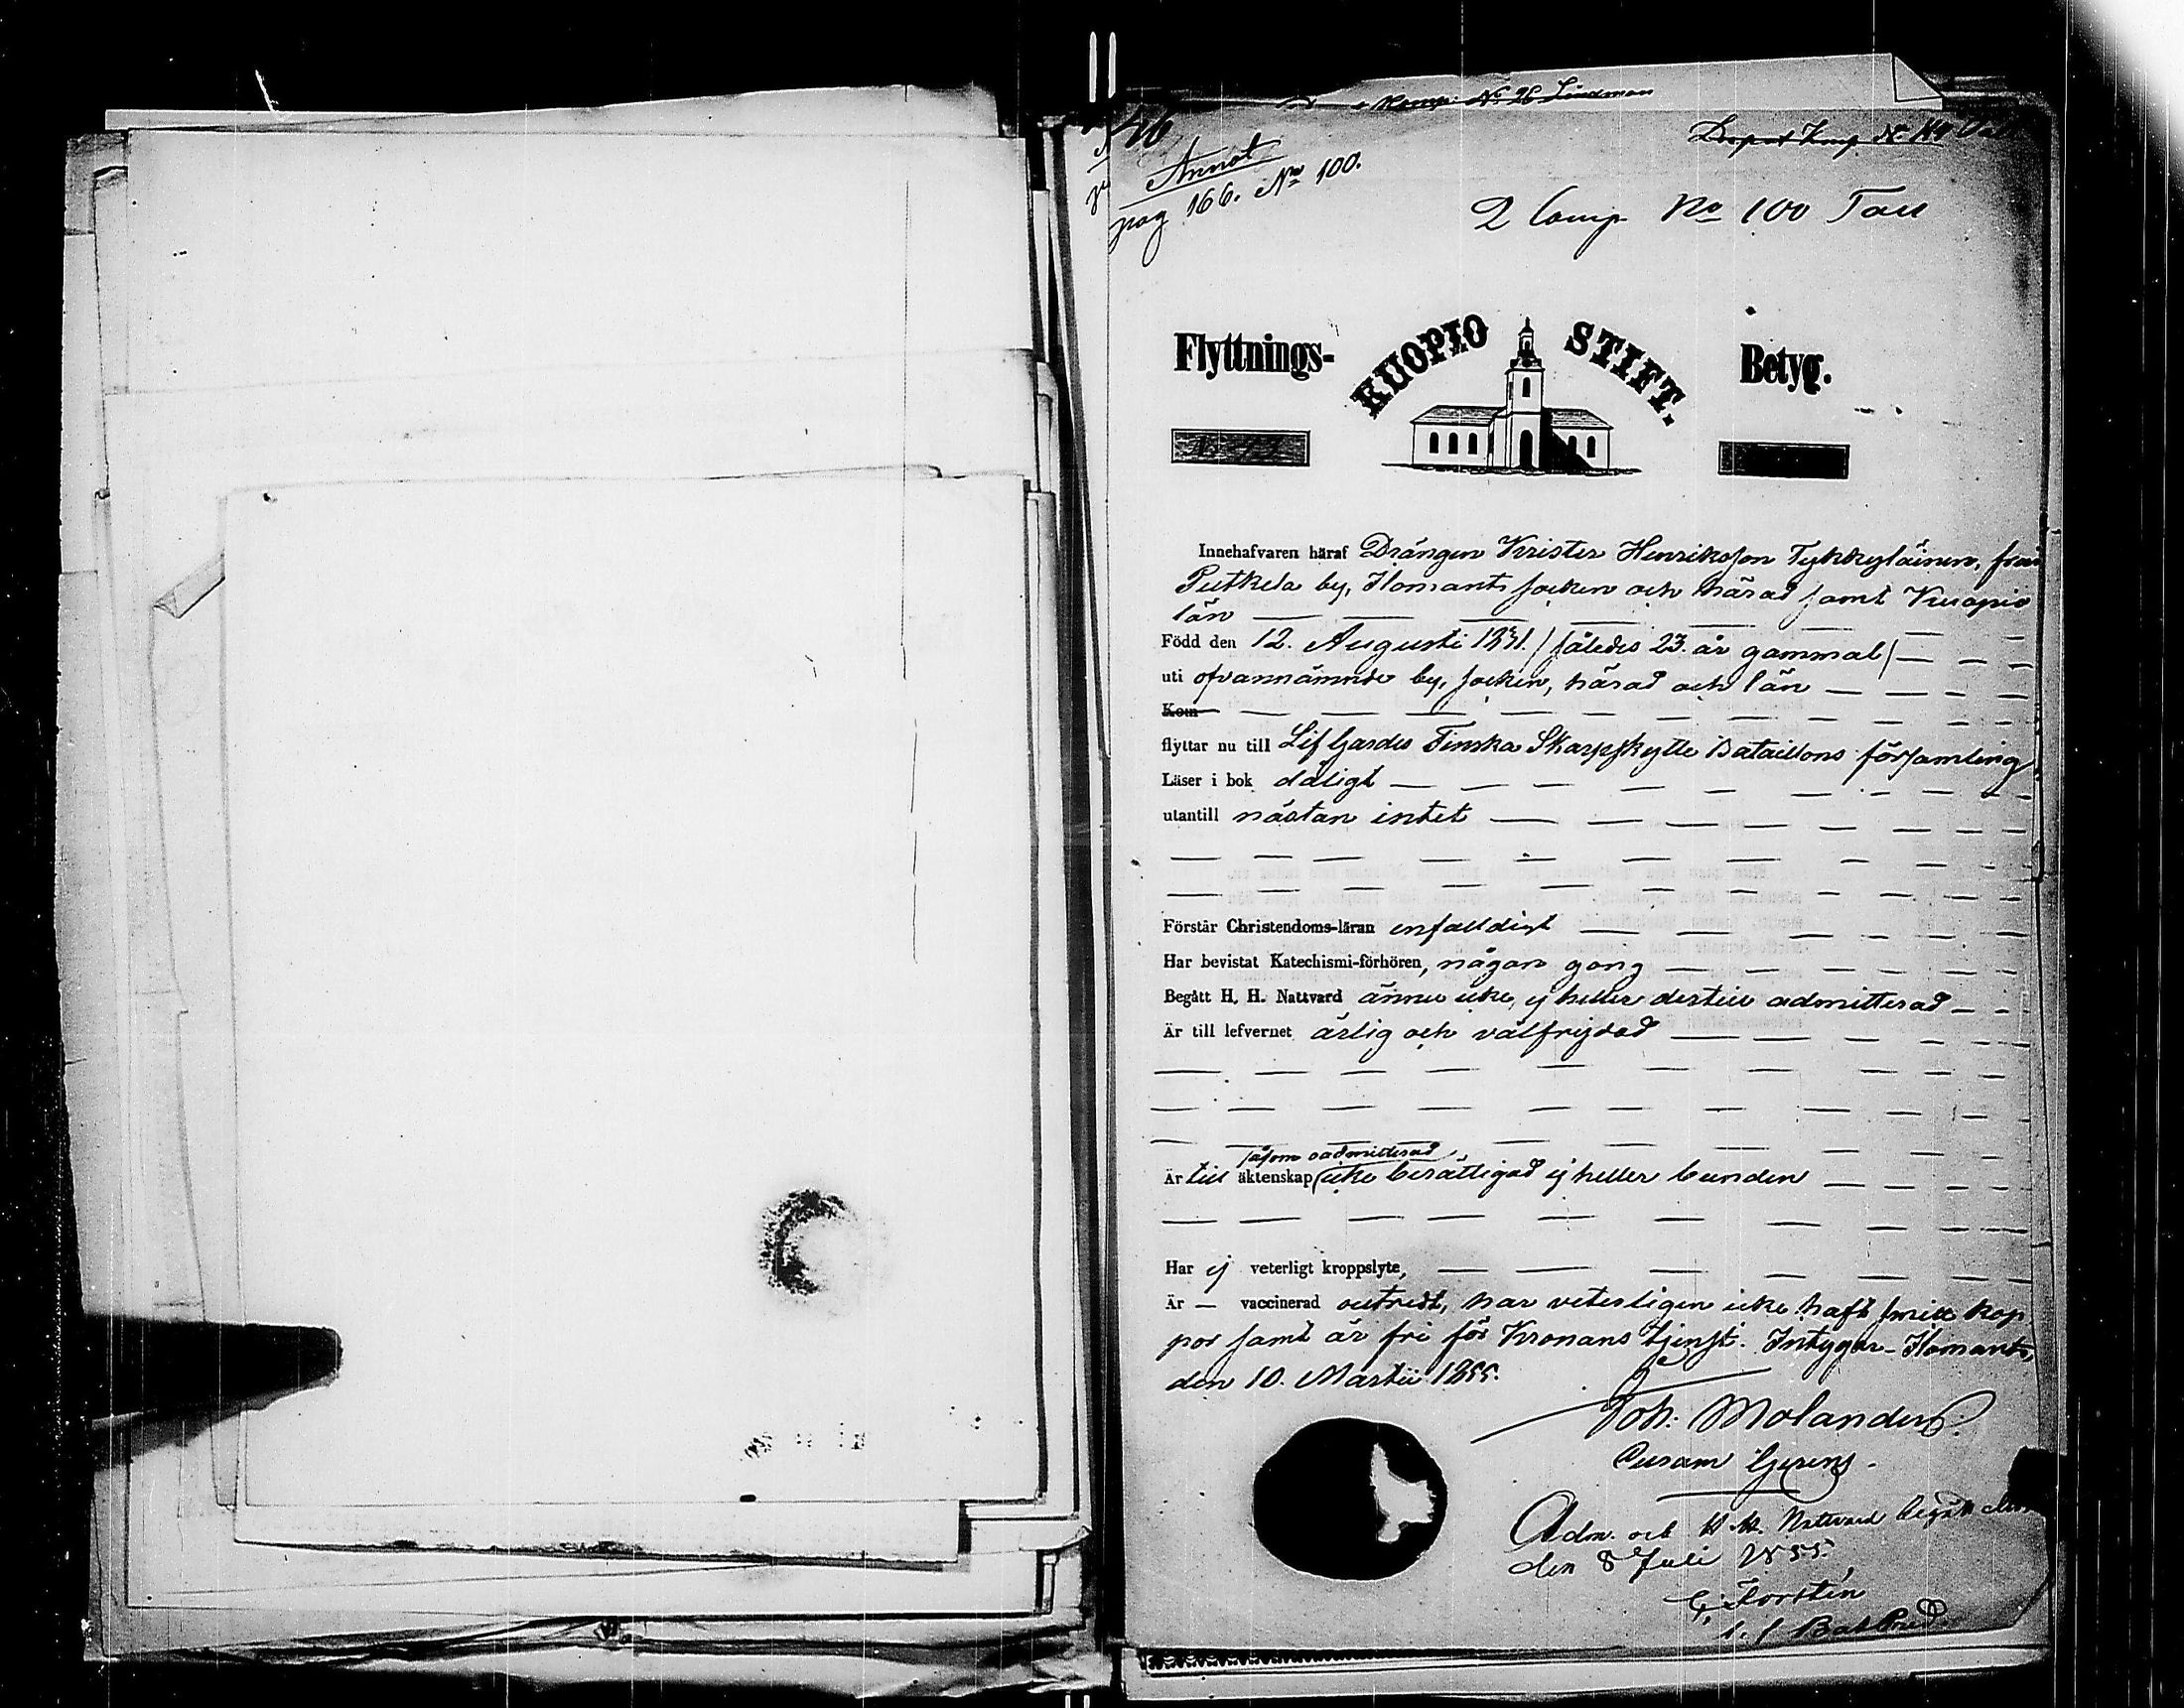 Komp: No 26 Lindman
46
Depot Komp No 114
Annot
pag 166. No 100.
2 Comp No 100 Tau
Flyttnings- KUOPIO STIFT. Betyg.
Innehafvaren häraf Drängen Krister Henriksson Tykkyläinen, från
Putkela by, Ilomants socken och härad samt Kuopio
län
Född den 12. Augusti 1831. /således 23. år gammal/
uti ofvannämnde by, socken, härad och län
Kom
flyttar nu till Lif Gardes Finska Skarpskytte Bataillons församling.
Läser i bok dåligt
utantill nästan intet
Förstår Christendoms-läran enfaldigt
Har bevistat Katechismi-förhören, någon gång
Begått H. H. Nattvard ännu icke, ej heller dertill admitterad
Är till lefvernet ärlig och välfrejdad
såsom oadmitterad
Är till äktenskap icke berättigad ej heller bunden
Har ej veterligt kroppslyte,
Är — vaccinerad veterligen icke haft smitt kop
por samt är fri för Kronans tjenst. Intygar Ilomants,
den 10. Martii 1855.
Joh. Molander.
Curam Gerens.
Adm. och H. H. Nattvard begått
den 8 Juli 1855.
G. Forstén